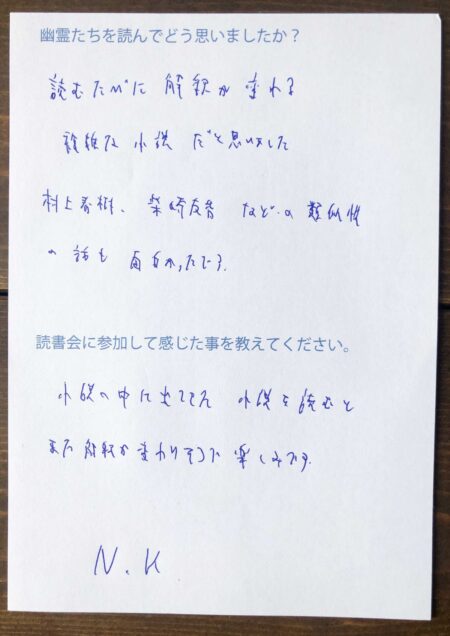 幽霊たちを読んでどう思いましたか？
読むたびに 解釈が 変わる
複雑な 小説 だと思いました
村上春樹、柴崎友香 などの 類似性
の 話も 面白かったです。
読書会に参加して感じた事を教えてください。
小説の中に出てきた 小説を読むと
また 解釈が変わりそうで 楽しみです。
N.K